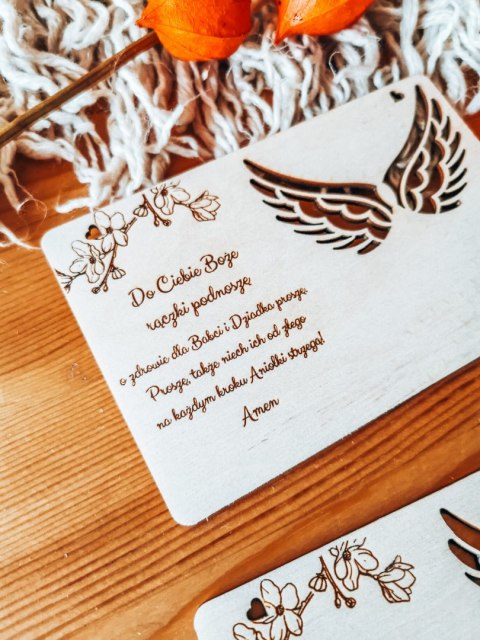 Do Ciebie Boże
rączki podnoszę
o zdrowie dla Babci i Dziadka proszę,
Proszę, także niech ich od złego
na każdym kroku Aniołki strzegą!
Amen